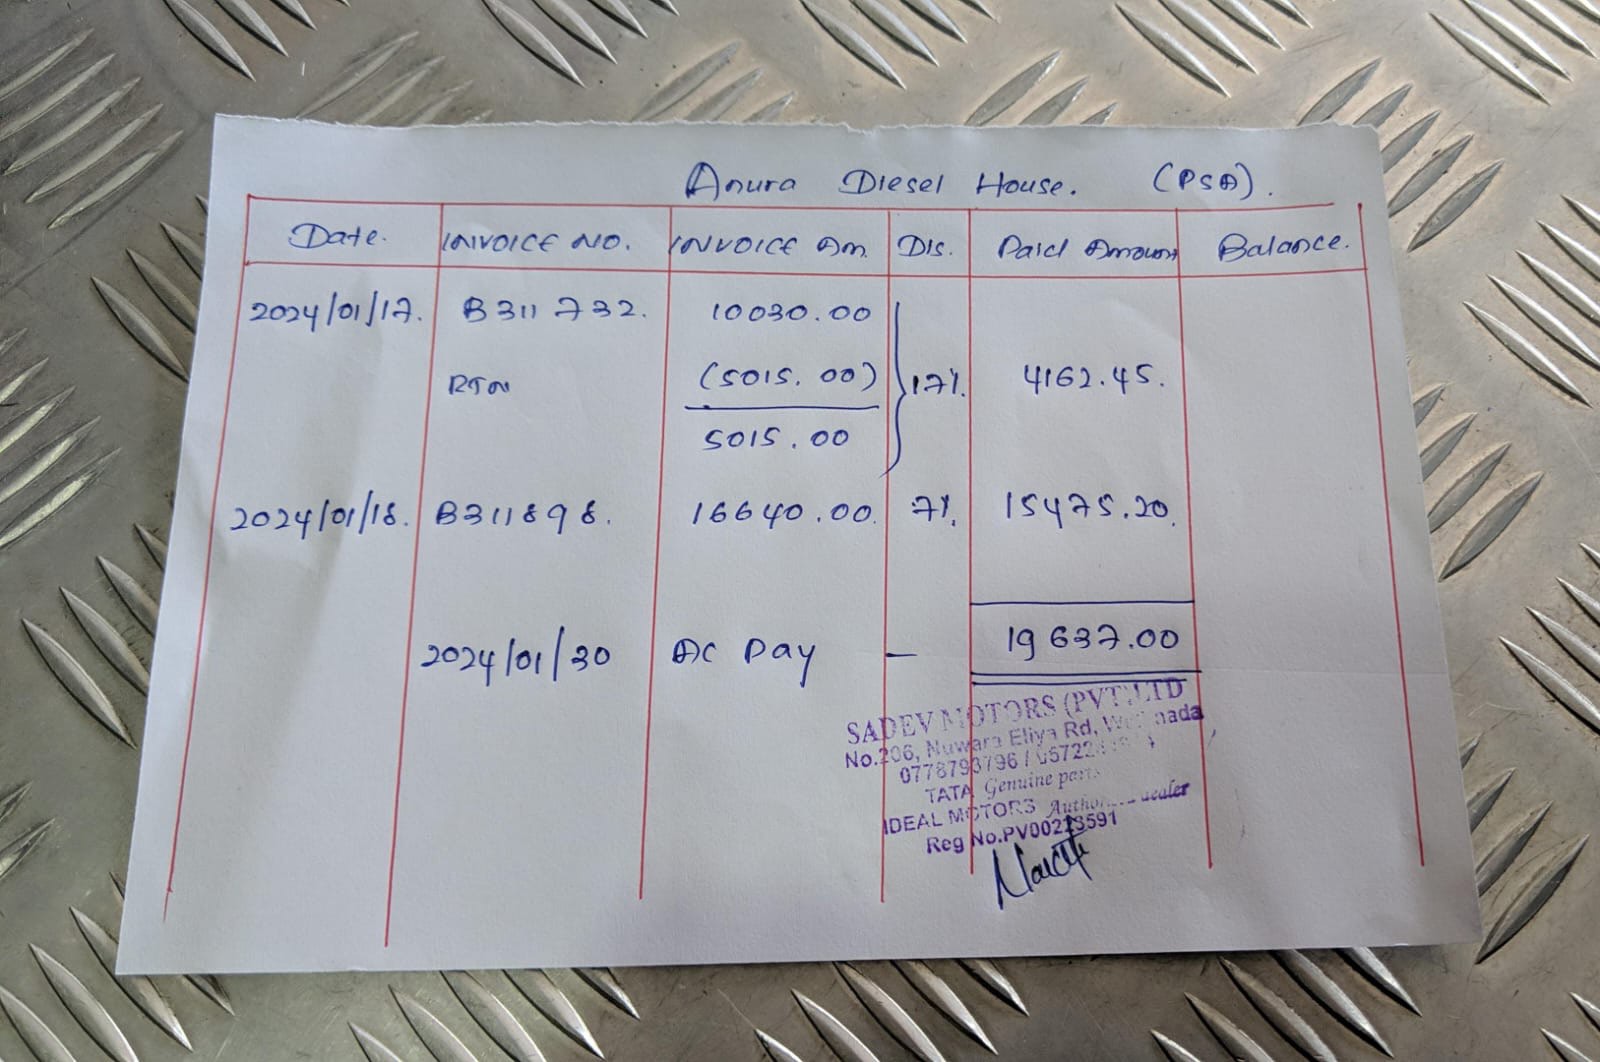 Anura Diesel House. (PSA).
Date. INVOICE NO. INVOICE Am. DIS. Paid Amount Balance.
2024/01/17. B311732. 10030.00
RTN (5015.00) 17%. 4162.45.
5015.00
2024/01/18. B311898. 16640.00. 7%. 15475.20.
2024/01/30 AC Pay — 19637.00
SADEV MOTORS (PVT) LTD
No.206, Nuwara Eliya Rd,
0778793796 /
TATA Genuine parts
IDEAL MOTORS Authorized dealer
Reg No.